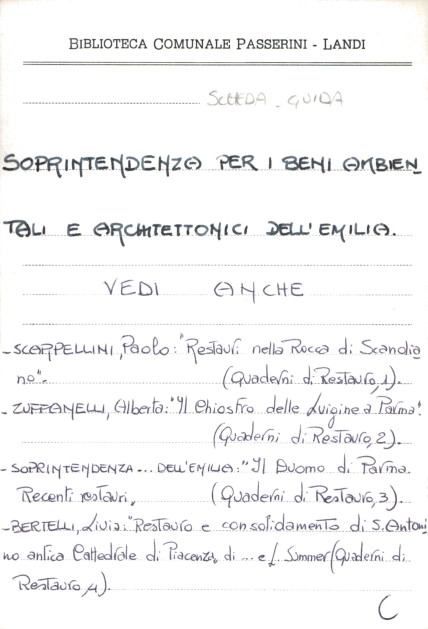 BIBLIOTECA COMUNALE PASSERINI - LANDI
SCHEDA - GUIDA
SOPRINTENDENZA PER I BENI AMBIEN
TALI E ARCHITETTONICI DELL'EMILIA.
VEDI ANCHE
-SCARPELLINI, Paolo: "Restauri nella Rocca di Scandia
no". (Quaderni di Restauro, 1).
- ZUFFANELLI, Alberta: "Il Chiostro delle Luigine a Parma".
(Quaderni di Restauro, 2).
-SOPRINTENDENZA ... DELL'EMILIA: "Il Duomo di Parma.
Recenti restauri". (Quaderni di Restauro, 3).
-BERTELLI, Livia: "Restauro e consolidamento di S. Antoni
no antica Cattedrale di Piacenza, di ... e L. Summer (Quaderni di
Restauro, 4).
C